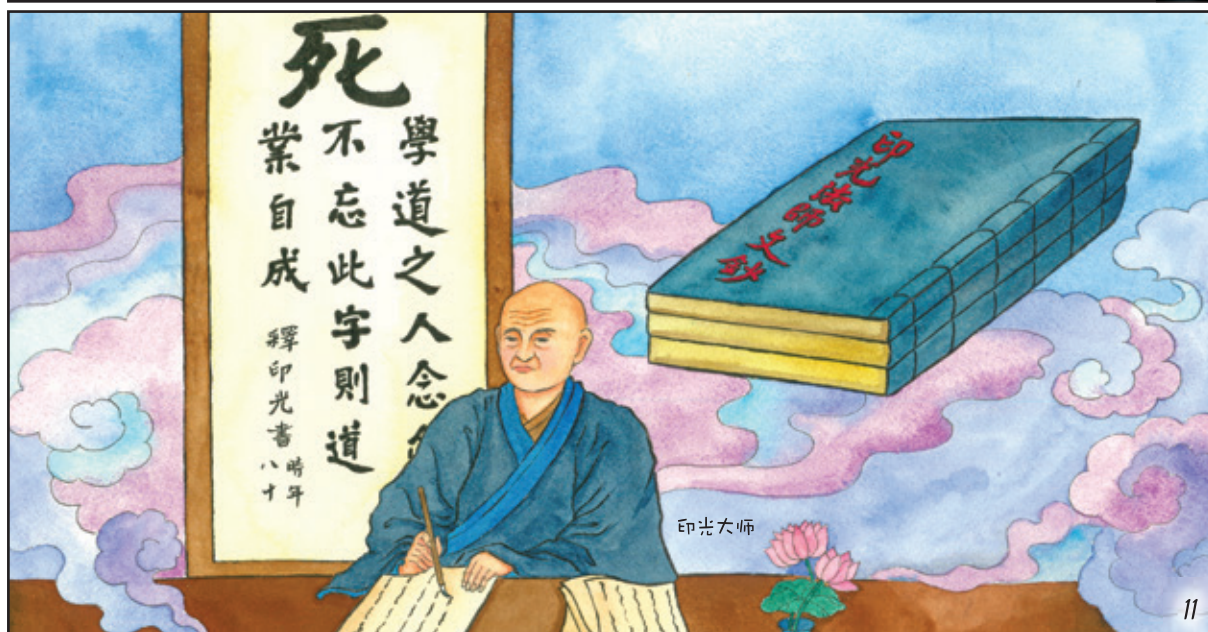 死
學道之人念念
不忘此字則道
業自成
釋印光書
時年
八十
印光法師文鈔
印光大师
11